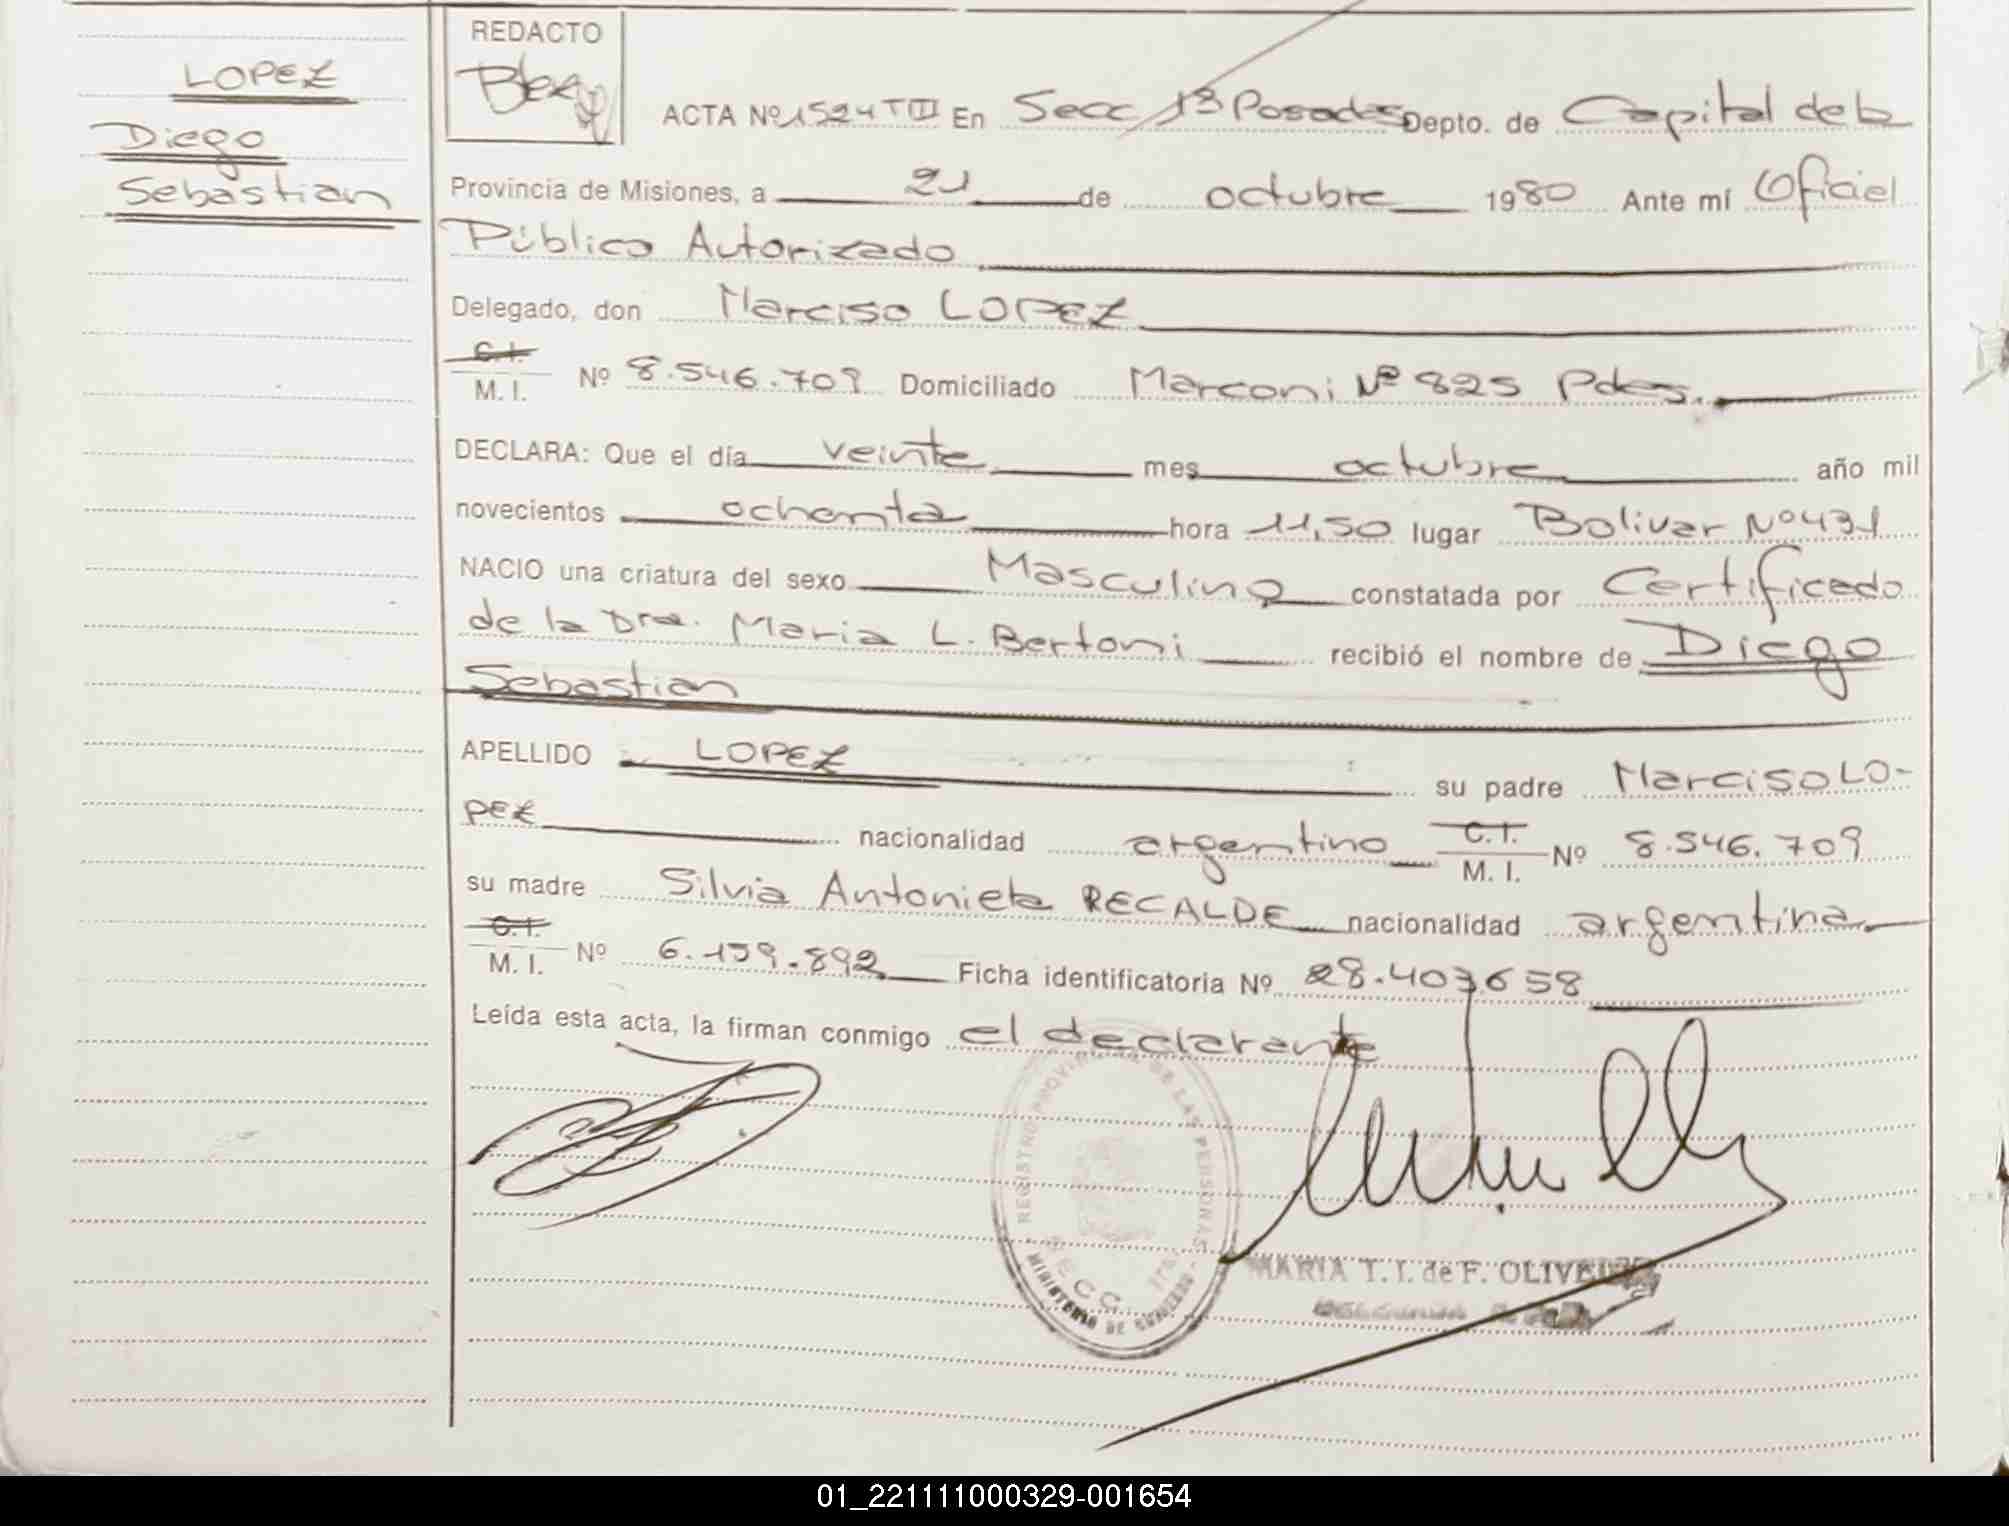 LOPEZ
Diego
Sebastian
REDACTO
ACTA Nº 1524 TIII En Secc 1ª Posadas Depto. de Capital de la
Provincia de Misiones, a 21 de octubre 1980 Ante mí Oficial
Público Autorizado
Delegado, don Narciso LOPEZ
C.I.
M. I. Nº 8.546.709 Domiciliado Marconi Nº 825 Pdas.
DECLARA: Que el día veinte mes octubre año mil
novecientos ochenta hora 11,50 lugar Bolivar Nº 431
NACIO una criatura del sexo Masculino constatada por Certificado
de la Dra. Maria L. Bertoni recibió el nombre de Diego
Sebastian
APELLIDO LOPEZ su padre Narciso LO-
PEZ nacionalidad argentino C.I. M. I. Nº 8.546.709
su madre Silvia Antonieta RECALDE nacionalidad argentina
C.I.
M. I. Nº 6.159.892 Ficha identificatoria Nº 28.403658
Leída esta acta, la firman conmigo el declarante
REGISTRO PROVINCIAL DE LAS PERSONAS
SECC. 1ra.
MINISTERIO DE GOBIERNO
MARIA T. I. de F. OLIVEIRA
01_221111000329-001654